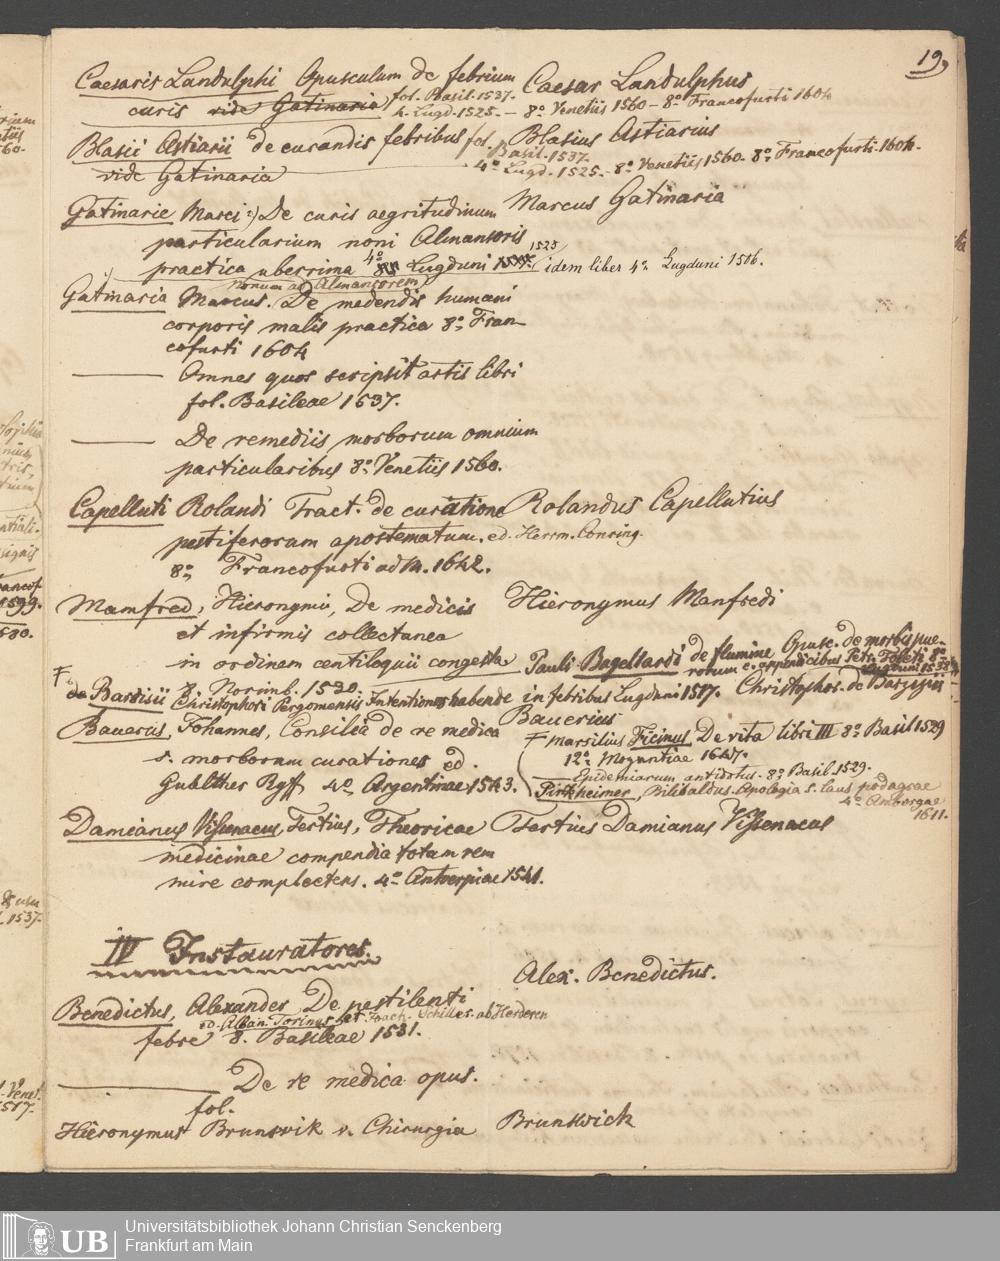 19,
Caesaris Landulphi Opusculum de febrium Caesar Landulphus
curis vide Gatinaria fol. Basil. 1537.
4. Lugd. 1525. – 8° Venetiis 1560 – 8° Francofurti 1604
Blasii Astiarii de curandis febribus fol. Blasius Astiarius
Basil. 1537.
vide Gatinaria 4° Lugd. 1525. – 8° Venetiis 1560. 8° Francofurti 1604.
Gatinarie Marci De curis aegritudinum Marcus Gatinaria
particularium noni Almansoris
practica uberrima 4° Lugduni 1525 idem liber 4° Lugduni 1506.
nonum ad Almansorem
Gatinaria Marcus. De medendis humani
corporis malis practica 8° Fran-
cofurti 1604
——— Omnes quos scripsit artis libri
fol. Basileae 1537.
——— De remediis morborum omnium
particularibus 8° Venetiis 1560.
Capelluti Rolandi Tract. de curatione Rolandus Capellutius
pestiferorum apostematum. ed. Herrm. Conring.
8° Francofurti ad M. 1642.
Mamfred, Hieronymii, De medicis Hieronymus Manfredi
et infirmis collectanea
in ordinem centiloquii congesta
4° Norimb. 1530.
Pauli Bagellardi de flumine Opusc. de morbis pue-
rorum c. appendicibus Petr. Toleti 8°
Lugduni 1538
de Barsisii Christophori Pergomensis Intentiones habende in febribus Lugduni 1517. Christophor. de Barzisiis
Bauerus, Johannes, Consilia de re medica Bauerius
s. morborum curationes ed.
Gualther Ryff 4° Argentinae 1543.
F Marsilius Ficinus De vita libri III 8° Basil 1529
12° Moguntiae 1647.
——— Epidemiarum antidotus. 8° Basil. 1529.
Pirkheimer, Bilibaldus. Apologia s. laus podagrae
4° Ambergae
1611.
Damianus Vissenacus, Tertius, Theoricae Tertius Damianus Vissenacus
medicinae compendia totam rem
mire complectens. 4° Antverpiae 1541.
IV Instauratores.
Alex. Benedictus.
Benedictus, Alexander De pestilenti
ed. Alban. Torinus et Joach. Schiller ab Herderen
febre 8. Basileae 1531.
——— De re medica opus.
fol.
Hieronymus Brunsvik v. Chirurgia Brunswick
Universitätsbibliothek Johann Christian Senckenberg
Frankfurt am Main
UB